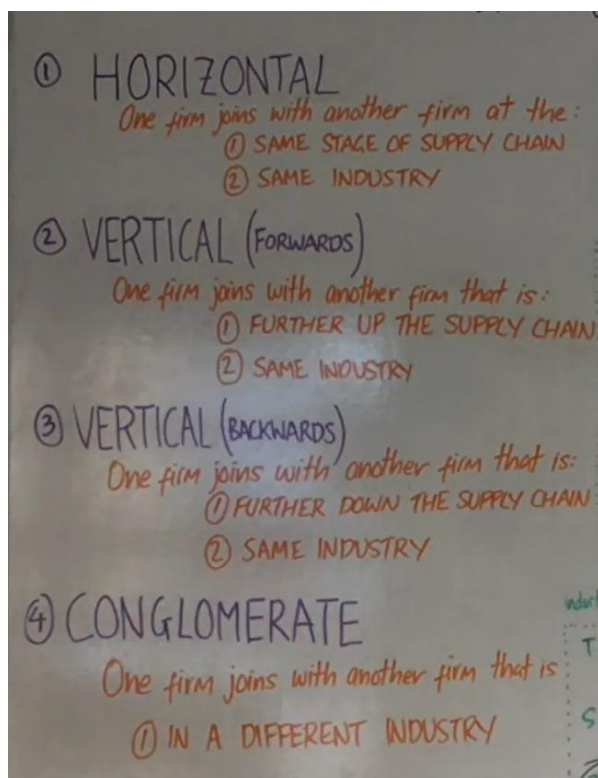 ① HORIZONTAL
One firm joins with another firm at the:
① SAME STAGE OF SUPPLY CHAIN
② SAME INDUSTRY
② VERTICAL (FORWARDS)
One firm joins with another firm that is:
① FURTHER UP THE SUPPLY CHAIN
② SAME INDUSTRY
③ VERTICAL (BACKWARDS)
One firm joins with another firm that is:
① FURTHER DOWN THE SUPPLY CHAIN
② SAME INDUSTRY
④ CONGLOMERATE
One firm joins with another firm that is
① IN A DIFFERENT INDUSTRY
T
S